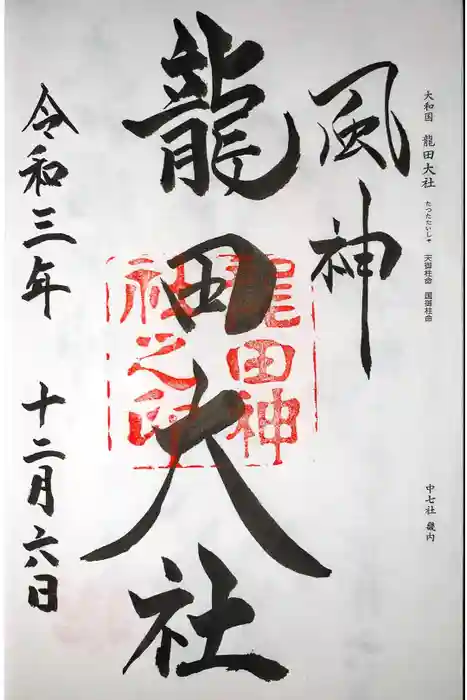 大和国 龍田大社 たつたたいしゃ 天御柱命 国御柱命
中七社 畿内
風神
龍田大社
龍田神
社之印
令和三年 十二月六日